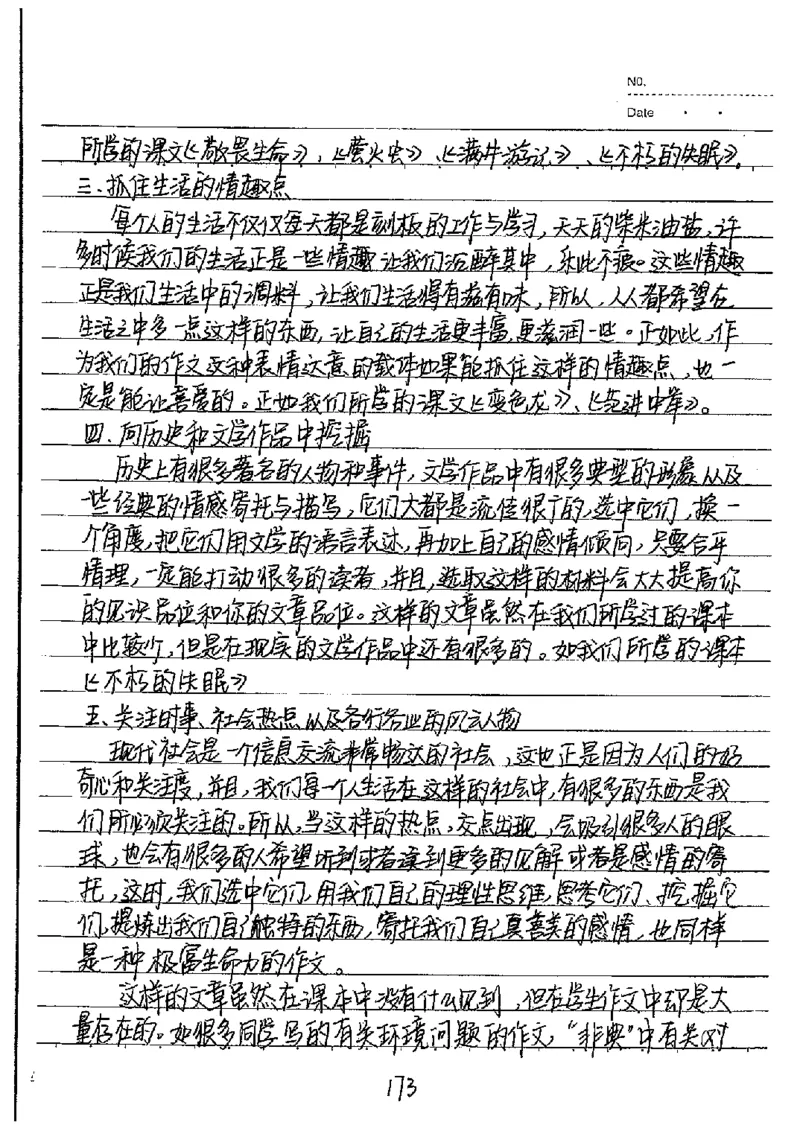 NO.
Date
所学的课文《敬畏生命》,《萤火虫》、《满井游记》、《不朽的失眠》。
三、抓住生活的情趣点
每个人的生活不仅仅每天都是刻板的工作与学习,天天的柴米油盐,许
多时候我们的生活正是一些情趣让我们沉醉其中,乐此不疲。这些情趣
正是我们生活中的调料,让我们生活得有滋有味,所以,人人都希望在
生活之中多一点这样的东西,让自己的生活更丰富,更滋润一些。正如此,作
为我们的作文这种表情达意的载体如果能抓住这样的情趣点,也一
定是能让喜爱的。正如我们所学的课文《变色龙》、《范进中举》。
四、向历史和文学作品中挖掘
历史上有很多著名的人物和事件,文学作品中有很多典型的形象以及
一些经典的情感寄托与描写,它们大都是流传很广的,选中它们,换一
个角度,把它们用文学的语言表述,再加上自己的感情倾向,只要合乎
情理,一定能打动很多的读者,并且,选取这样的材料会大大提高你
的见识品位和你的文章品位。这样的文章虽然在我们所学过的课本
中比较少,但是在现实的文学作品中还有很多的。如我们所学的课本
《不朽的失眠》
五、关注时事、社会热点以及各行各业的风云人物
现代社会是一个信息交流非常畅达的社会,这也正是因为人们的好
奇心和关注度,并且,我们每一个人生活在这样的社会中,有很多的东西是我
们所必须关注的。所以,当这样的热点,交点出现,会吸引很多人的眼
球,也会有很多的人希望听到或者读到更多的见解或者是感情的寄
托,这时,我们选中它们,用我们自己的理性思维,思考它们、挖掘它
们,提炼出我们自己独特的东西,寄托我们自己真善美的感情,也同样
是一种极富生命力的作文。
这样的文章虽然在课本中没有什么见到,但在学生作文中却是大
量存在的。如很多同学写的有关环境问题的作文,“非典”中有关对
173